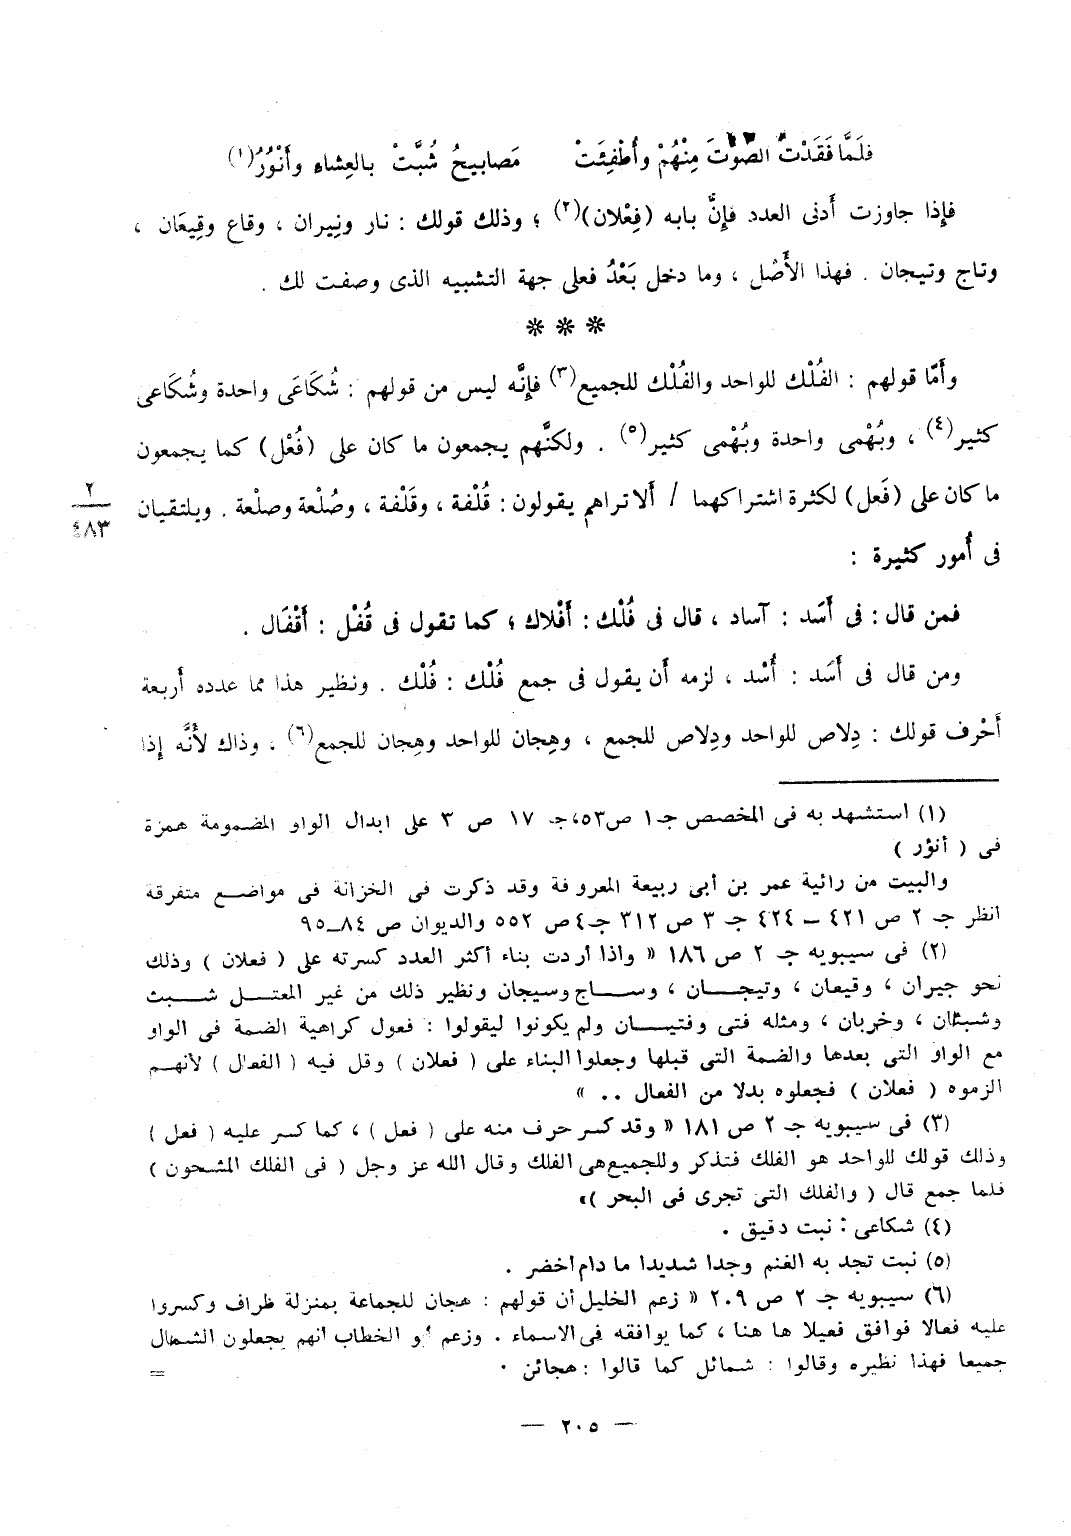 فلَمَّا فَقَدْتُ الصَّوْتَ مِنْهُمْ وأُطْفِئَتْ مَصابيحُ شُبَّتْ بالعِشاءِ وأَنْوُرُ(١)
فإِذا جاوزت أَدنى العدد فإِنَّ بابه (فِعْلان)(٢) ؛ وذلك قولك : نار ونِيران ، وقاع وقِيعَان ،
وتاج وتيجان . فهذا الأَصْل ، وما دخل بَعْدُ فعلى جهة التشبيه الذى وصفت لك .
***
وأَمّا قولهم : الفُلْك للواحد والفُلْك للجميع(٣) فإِنَّه ليس من قولهم : شُكَاعَى واحدة وشُكَاعى
كثير(٤) ، وبُهْمى واحدة وبُهْمى كثير(٥) . ولكنَّهم يجمعون ما كان على (فُعْل) كما يجمعون
ما كان على (فَعل) لكثرة اشتراكهما / أَلا تراهم يقولون : قُلْفة ، وقَلْفة ، وصُلْعة وصلْعة . ويلتقيان
٢
٤٨٣
فى أُمور كثيرة :
فمن قال : فى أَسَد : آساد ، قال فى فُلْك : أَفْلاك ؛ كما تقول فى قُفْل : أَقْفَال .
ومن قال فى أَسَد : أُسْد ، لزمه أَن يقول فى جمع فُلْك : فُلْك . ونظير هذا مما عدده أَربعة
أَحْرف قولك : دِلاص للواحد ودِلاص للجمع ، وهِجان للواحد وهِجان للجمع(٦) ، وذاك لأَنَّه إِذا
(١) استشهد به فى المخصص جـ١ ص٥٣،جـ ١٧ ص ٣ على ابدال الواو المضمومة همزة
فى ( أنؤر )
والبيت من رائية عمر بن أبى ربيعة المعروفة وقد ذكرت فى الخزانة فى مواضع متفرقة
انظر جـ ٢ ص ٤٢١ – ٤٢٤ جـ ٣ ص ٣١٢ جـ٤ ص ٥٥٢ والديوان ص ٨٤–٩٥
(٢) فى سيبويه جـ ٢ ص ١٨٦ « واذا أردت بناء أكثر العدد كسرته على ( فعلان ) وذلك
نحو جيران ، وقيعان ، وتيجان ، وساج وسيجان ونظير ذلك من غير المعتل شبث
وشبثان ، وخربان ، ومثله فتى وفتيان ولم يكونوا ليقولوا : فعول كراهية الضمة فى الواو
مع الواو التى بعدها والضمة التى قبلها وجعلوا البناء على ( فعلان ) وقل فيه ( الفعال ) لأنهم
الزموه ( فعلان ) فجعلوه بدلا من الفعال .. »
(٣) فى سيبويه جـ ٢ ص ١٨١ « وقد كسر حرف منه على ( فعل ) ، كما كسر عليه ( فعل )
وذلك قولك للواحد هو الفلك فتذكر وللجميع هى الفلك وقال الله عز وجل ( فى الفلك المشحون )
فلما جمع قال ( والفلك التى تجرى فى البحر )»
(٤) شكاعى : نبت دقيق .
(٥) نبت تجد به الغنم وجدا شديدا ما دام أخضر .
(٦) سيبويه جـ ٢ ص ٢٠٩ « زعم الخليل أن قولهم : هجان للجماعة بمنزلة ظراف وكسروا
عليه فعالا فوافق فعيلا ها هنا ، كما يوافقه فى الاسماء . وزعم أبو الخطاب انهم يجعلون الشمال
جميعا فهذا نظيره وقالوا : شمائل كما قالوا : هجائن .
=
— ٢٠٥ —